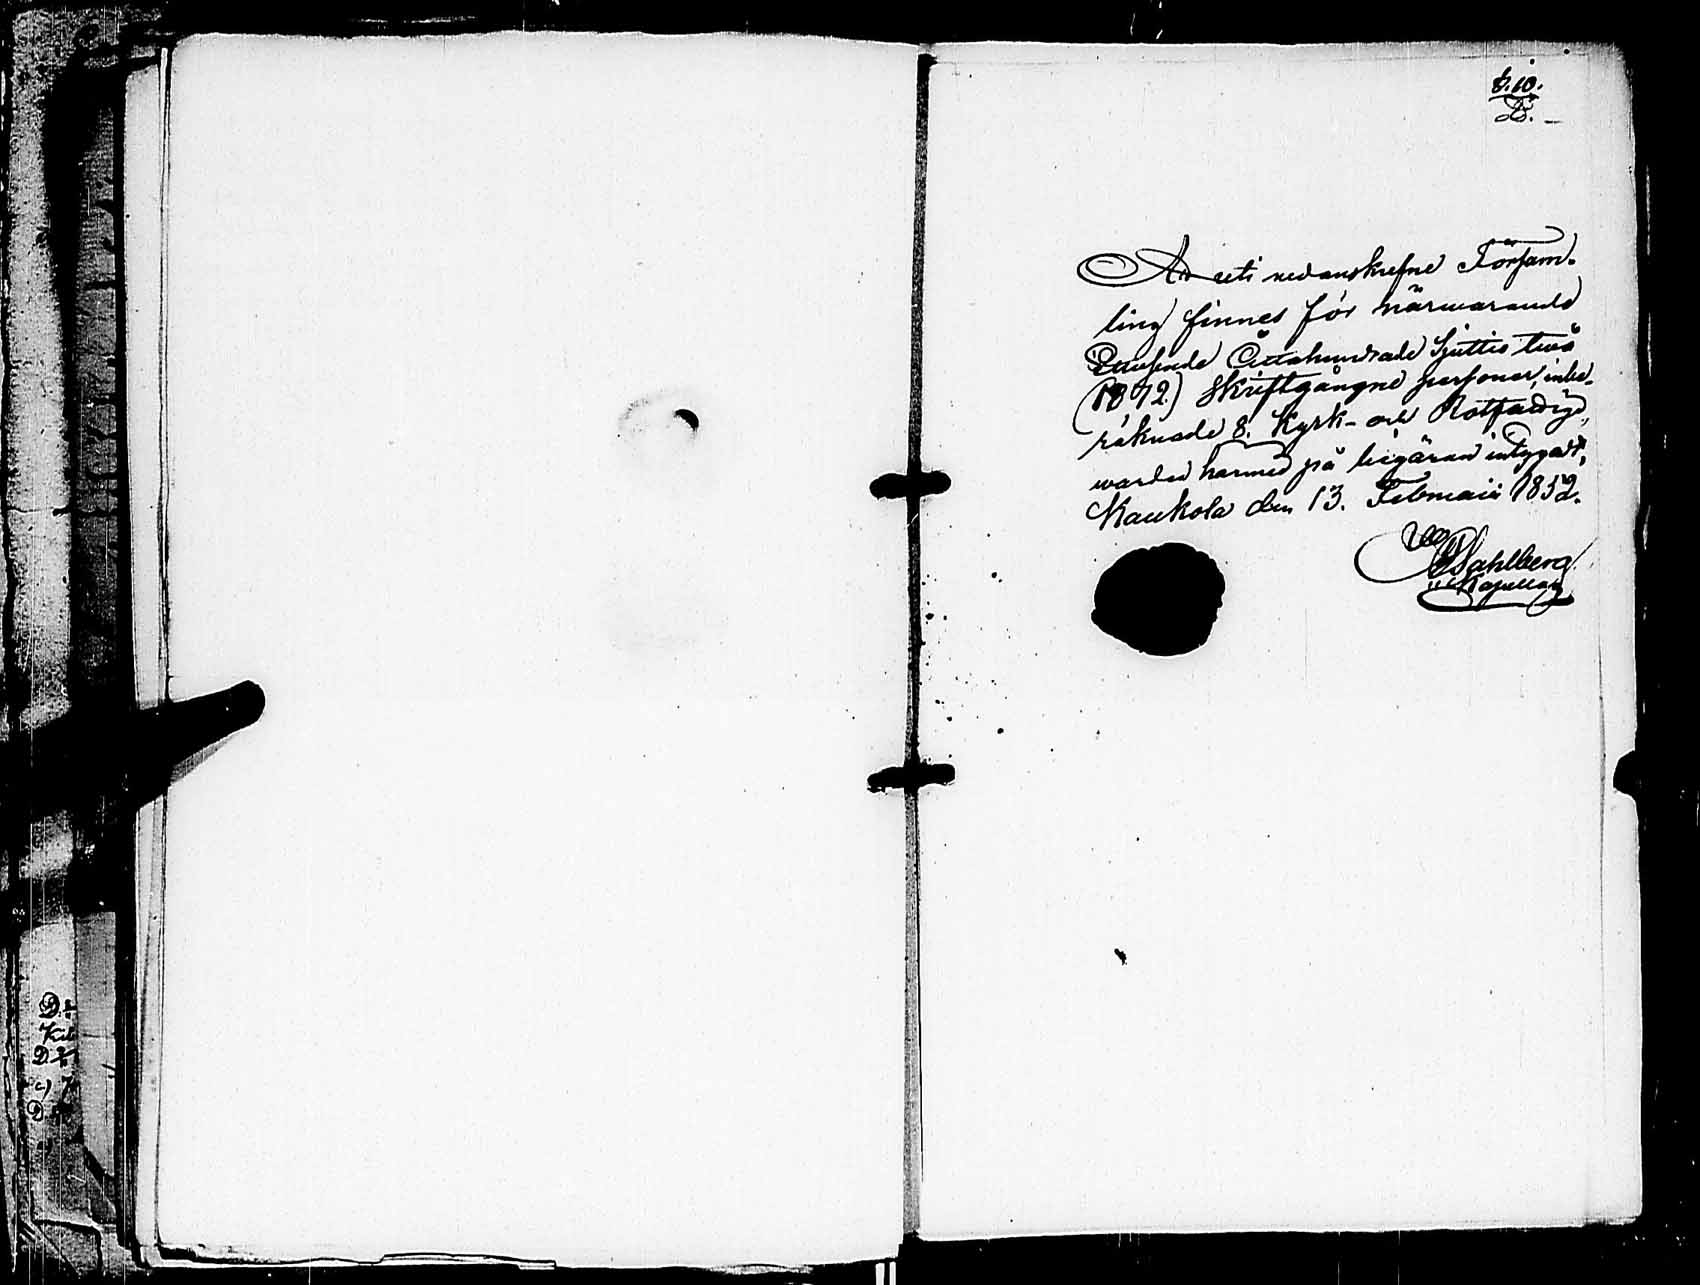 b. 10.
D. 
Att uti nedanskrefne Försam-
ling finnes för närwarande
Ettusende Åttahundrade Sjuttio twå
(1872.) skriftgångne personer, inbe-
räknade 8. Kyrk- och Rotfattige,
warder härmed på begäran intygadt,
Kaukola den 13. Februarii 1852.
Wahlberg
Kapellan
D.
Kit
D.
c)
D.